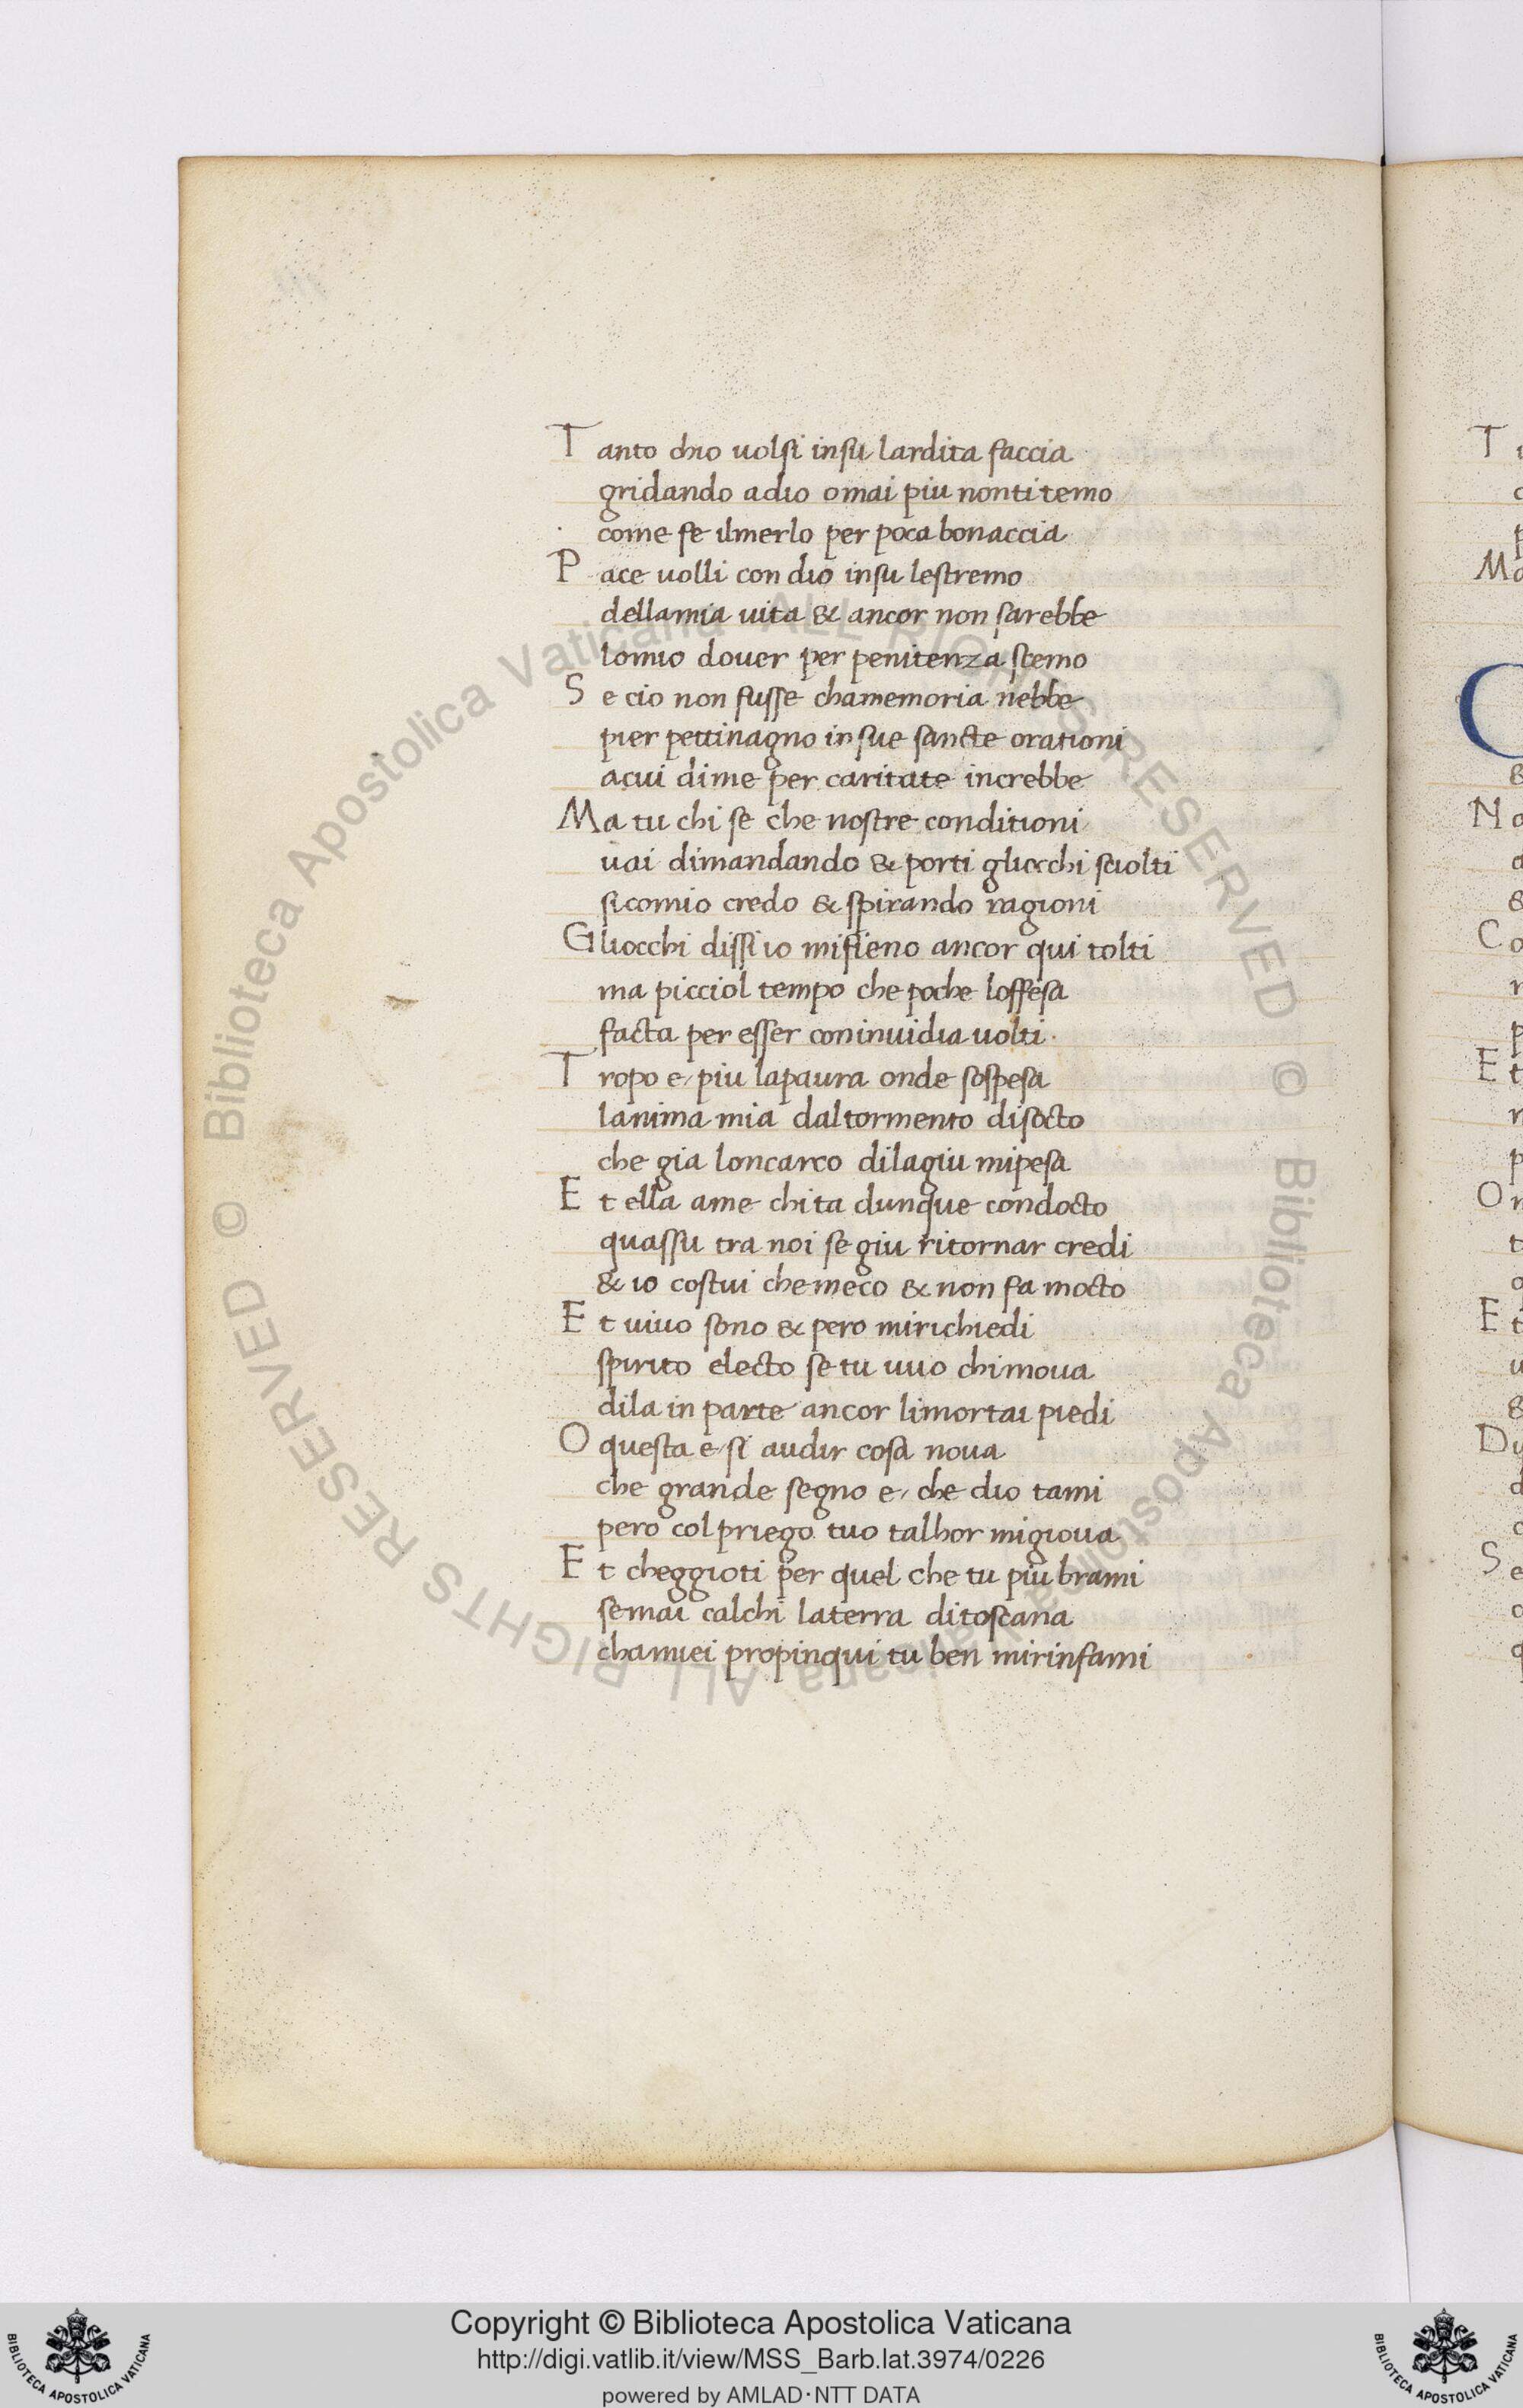 Tanto chio uolsi insu lardita faccia
gridando adio omai piu nonti temo
come fe ilmerlo per poca bonaccia
Pace uolli con dio insu lestremo
dellamia uita & ancor non sarebbe
lomio douer per penitenza scemo
Se cio non fusse chamemoria nebbe
pier pettinagno in sue sancte orationi
acui dime per caritate increbbe
Ma tu chi se che nostre conditioni
uai dimandando & porti gliocchi sciolti
sicomio credo & spirando ragioni
Gliocchi dissi io mifieno ancor qui tolti
ma picciol tempo che poche loffesa
facta per esser coninuidia uolti
Tropo e piu lapaura onde sospesa
lanima mia daltormento disocto
che gia loncarco dilagiu mipesa
Et ella ame chi ta dunque condocto
quassu tra noi se giu ritornar credi
& io costui chemeco & non fa mocto
Et uiuo sono & pero mirichiedi
spirito electo se tu uuo chi moua
dila in parte ancor limortai piedi
O questa e si audir cosa noua
che grande segno e che dio tami
pero col priego tuo talhor migioua
Et cheggioti per quel che tu piu brami
semai calchi laterra ditoscana
chamiei propinqui tu ben mirinfami
Copyright © Biblioteca Apostolica Vaticana
http://digi.vatlib.it/view/MSS_Barb.lat.3974/0226
powered by AMLAD·NTT DATA